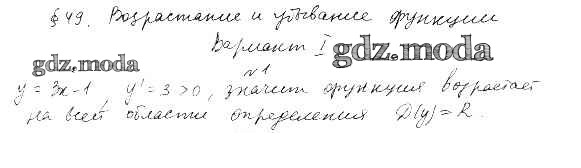 § 49. Возрастание и убывание функции
Вариант I gdz.moda
gdz.moda
№1
y = 3x - 1, y' = 3 > 0, значит функция возрастает
на всей области определения D(y) = R.